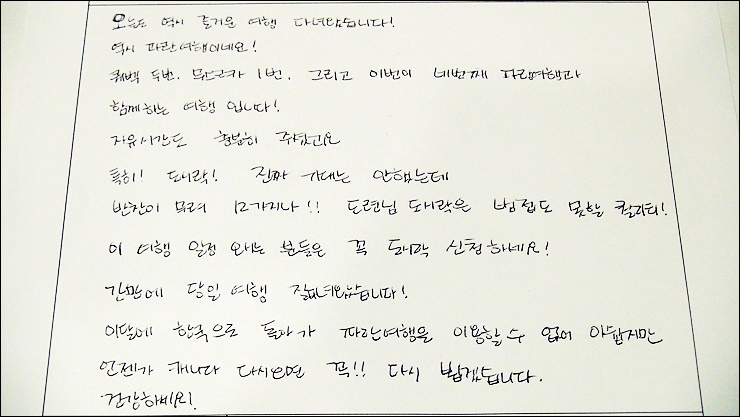 오늘도 역시 즐거운 여행 다녀왔습니다!
역시 파란여행이네요!
퀘백 두번, 몬트리올 1번, 그리고 이번이 네번째 파란여행과
함께하는 여행 입니다!
자유시간도 충분히 주셨고요
특히! 도시락! 진짜 기대는 안했는데
반찬이 무려 12가지나!! 도련님 도시락은 밥집도 못할 퀄리티!
이 여행 일정 오시는 분들은 꼭 도시락 신청하세요!
간만에 당일 여행 잘다녀왔습니다!
이달에 한국으로 돌아가 파란여행을 이용할 수 없어 아쉽지만
언젠가 캐나다 다시오면 꼭!! 다시 뵙겠습니다.
건강하세요!